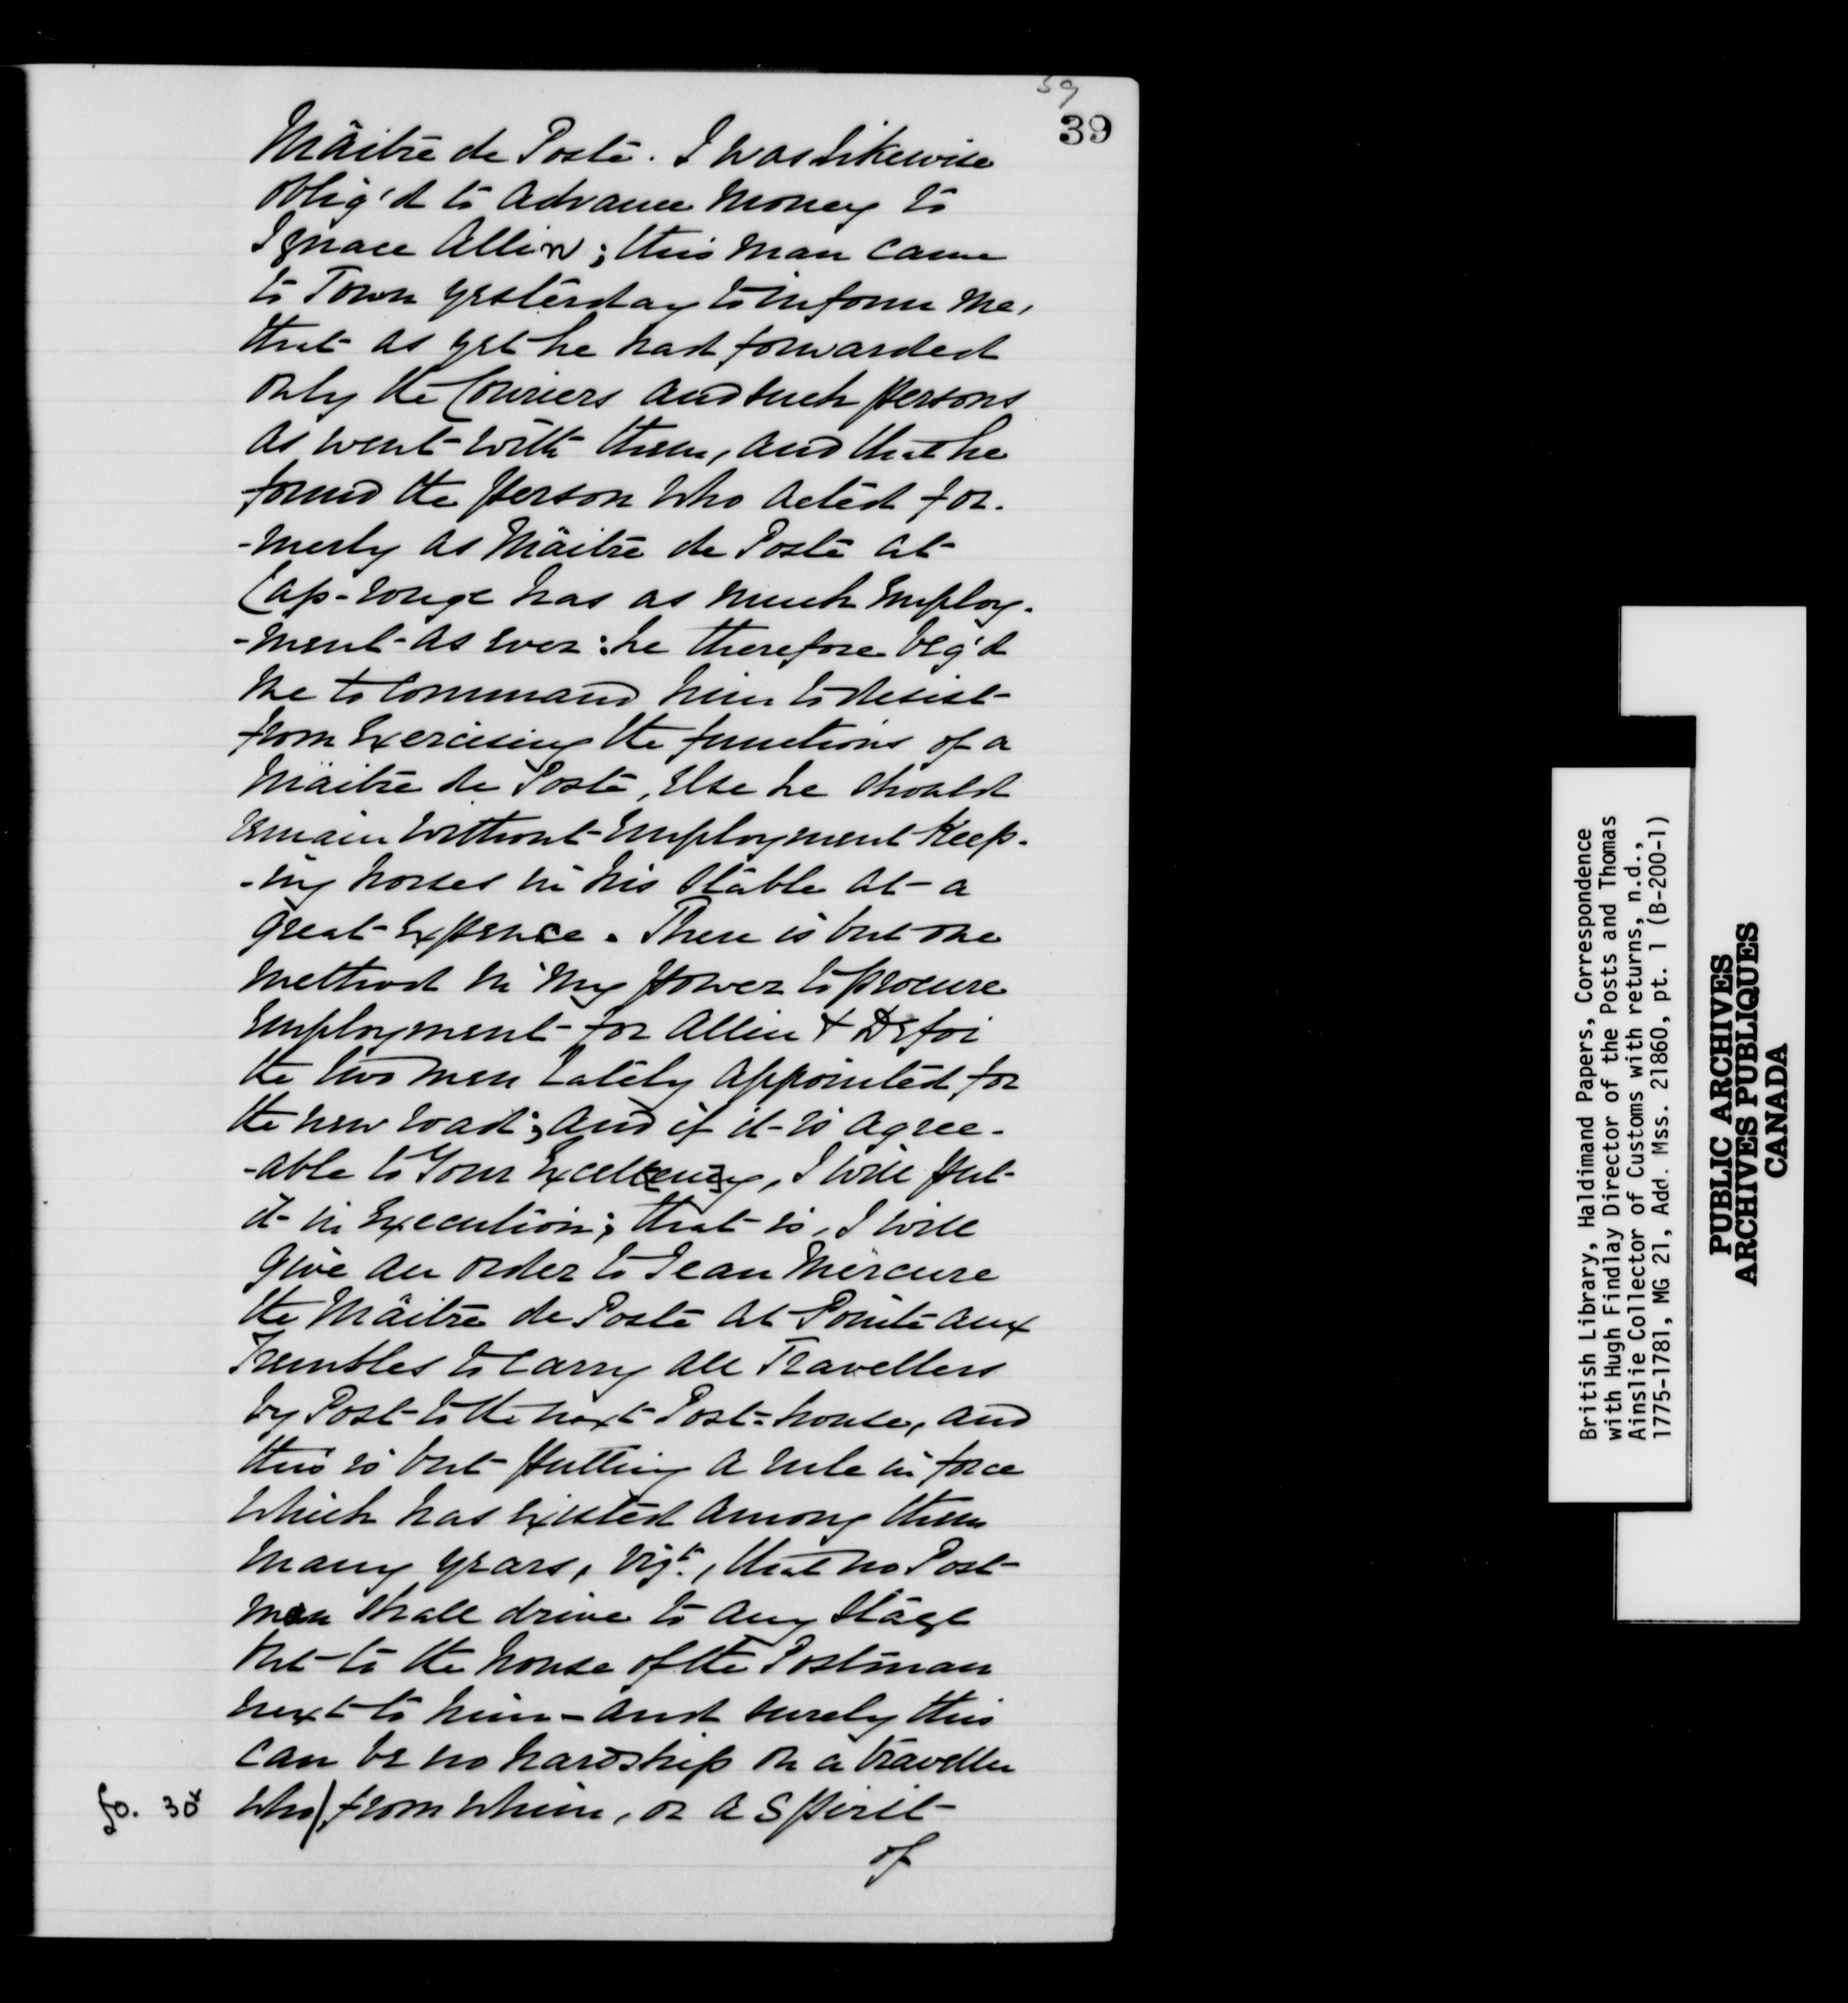 39
39
Mâitre de Poste. I was likewise
Oblig'd to advance money to
Ignace Allin; this man came
to Town yesterday to inform me,
that as yet he had forwarded
only the Couriers and such persons
as went with them, and that he
found the person who acted for-
-merly as Mâitre de Poste at
Cap-rouge has as much employ-
-ment as ever: he therefore beg'd
me to command him to desist
from exercising the functions of a
Mâitre de Poste, else he should
remain without employment keep-
-ing horses in his stable at a
great expence. There is but one
method in my power to procure
employment for Allin & Defoi
the two men lately appointed for
the new road; and if it is agree-
-able to Your Excellency, I will put
it in execution; that is, I will
give an order to Jean Mercure
the Mâitre de Poste at Pointe aux
Trembles to carry all Travellers
by Post to the next Post-house, and
this is but putting a rule in force
which has existed among them
many years, vizt., that no Post-
man shall drive to any stage
but to the house of the Postman
next to him - and surely this
can be no hardship on a traveller
fo. 30x who/ from whim, or a spirit
of
British Library, Haldimand Papers, Correspondence
with Hugh Findlay Director of the Posts and Thomas
Ainslie Collector of Customs with returns, n.d.,
1775-1781, MG 21, Add. Mss. 21860, pt. 1 (B-200-1)
PUBLIC ARCHIVES
ARCHIVES PUBLIQUES
CANADA